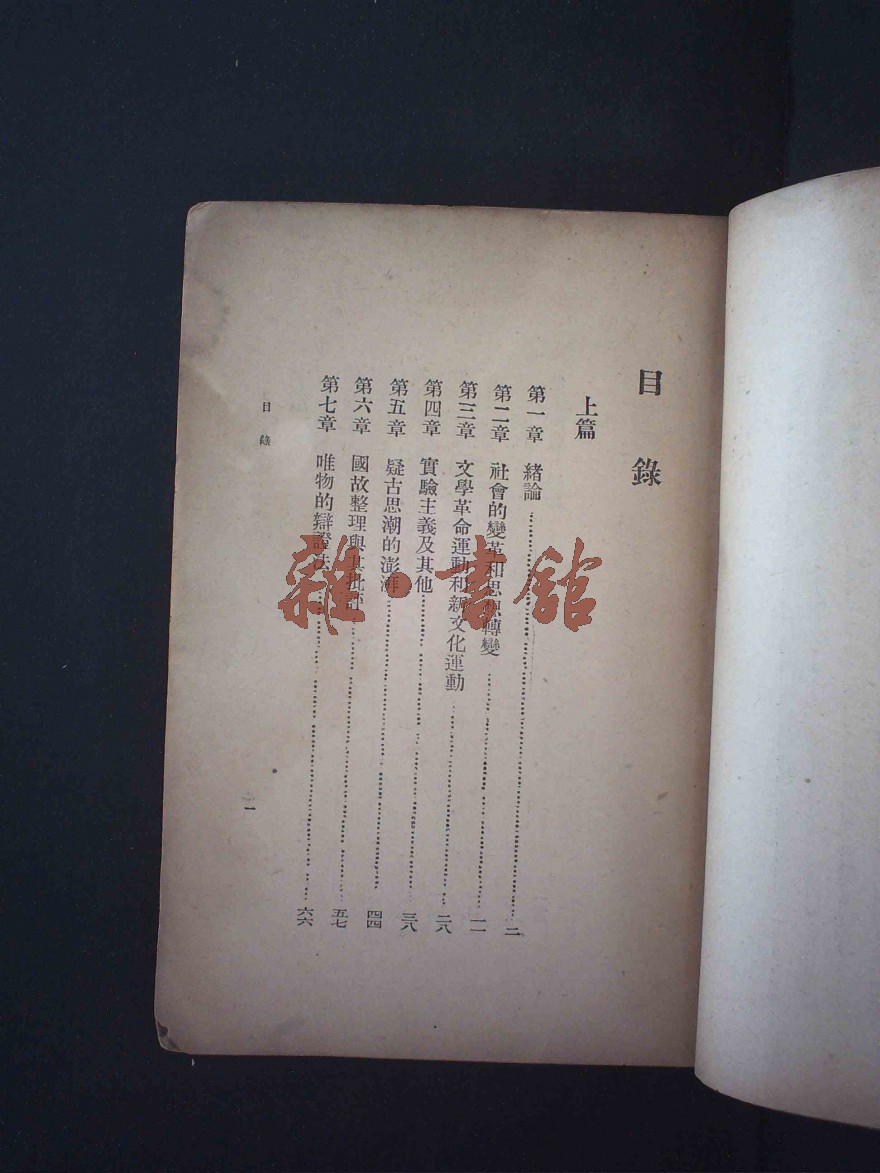 目錄
上篇
第一章 緒論……二
第二章 社會的變革和思想轉變……一一
第三章 文學革命運動和新文化運動……二八
第四章 實驗主義及其他……三八
第五章 疑古思潮的澎湃……四四
第六章 國故整理與其批評……五七
第七章 唯物的辯證法……六六
目錄
一
雜·書館